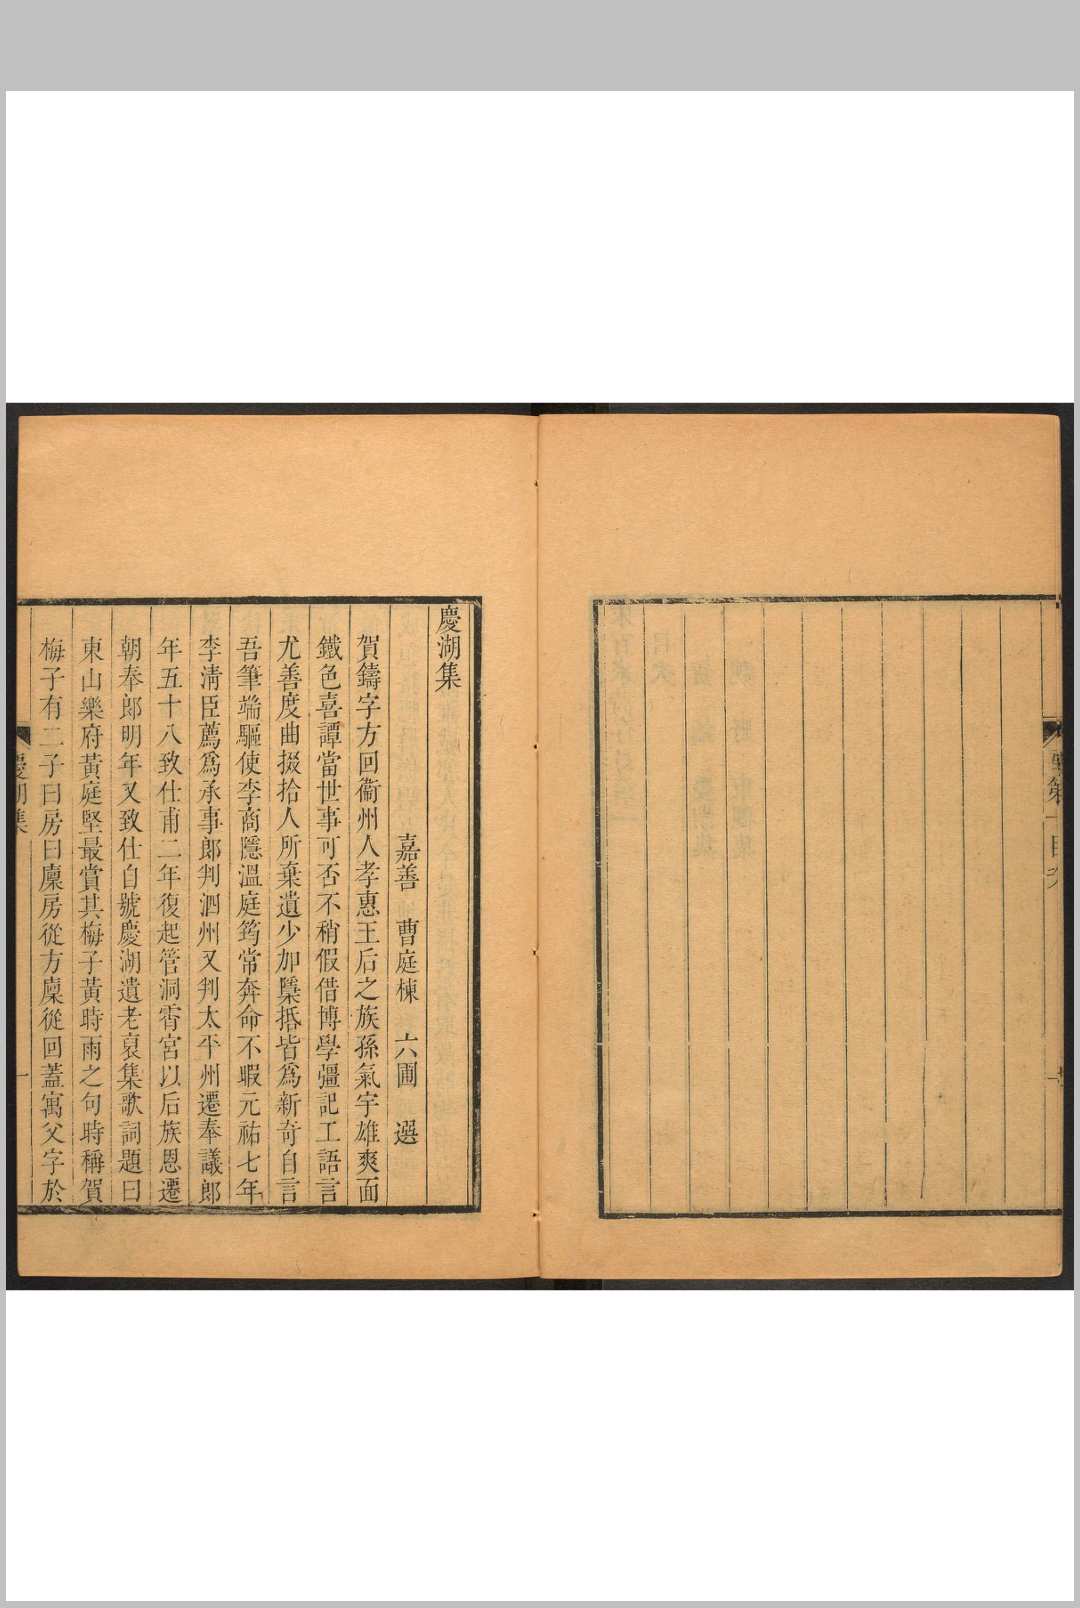 慶湖集
嘉善 曹庭棟 六圃 選
賀鑄字方回衞州人孝惠王后之族孫氣宇雄爽面
鐵色喜譚當世事可否不稍假借博學彊記工語言
尤善度曲掇拾人所棄遺少加檃括皆爲新奇自言
吾筆端驅使李商隱溫庭筠常奔命不暇元祐七年
李清臣薦爲承事郎判泗州又判太平州遷奉議郎
年五十八致仕甫二年復起管洞霄宮以后族恩遷
朝奉郎明年又致仕自號慶湖遺老裒集歌詞題曰
東山樂府黃庭堅最賞其梅子黃時雨之句時稱賀
梅子有二子曰房曰廩房從方廩從回蓋寓父字於
慶湖集
一